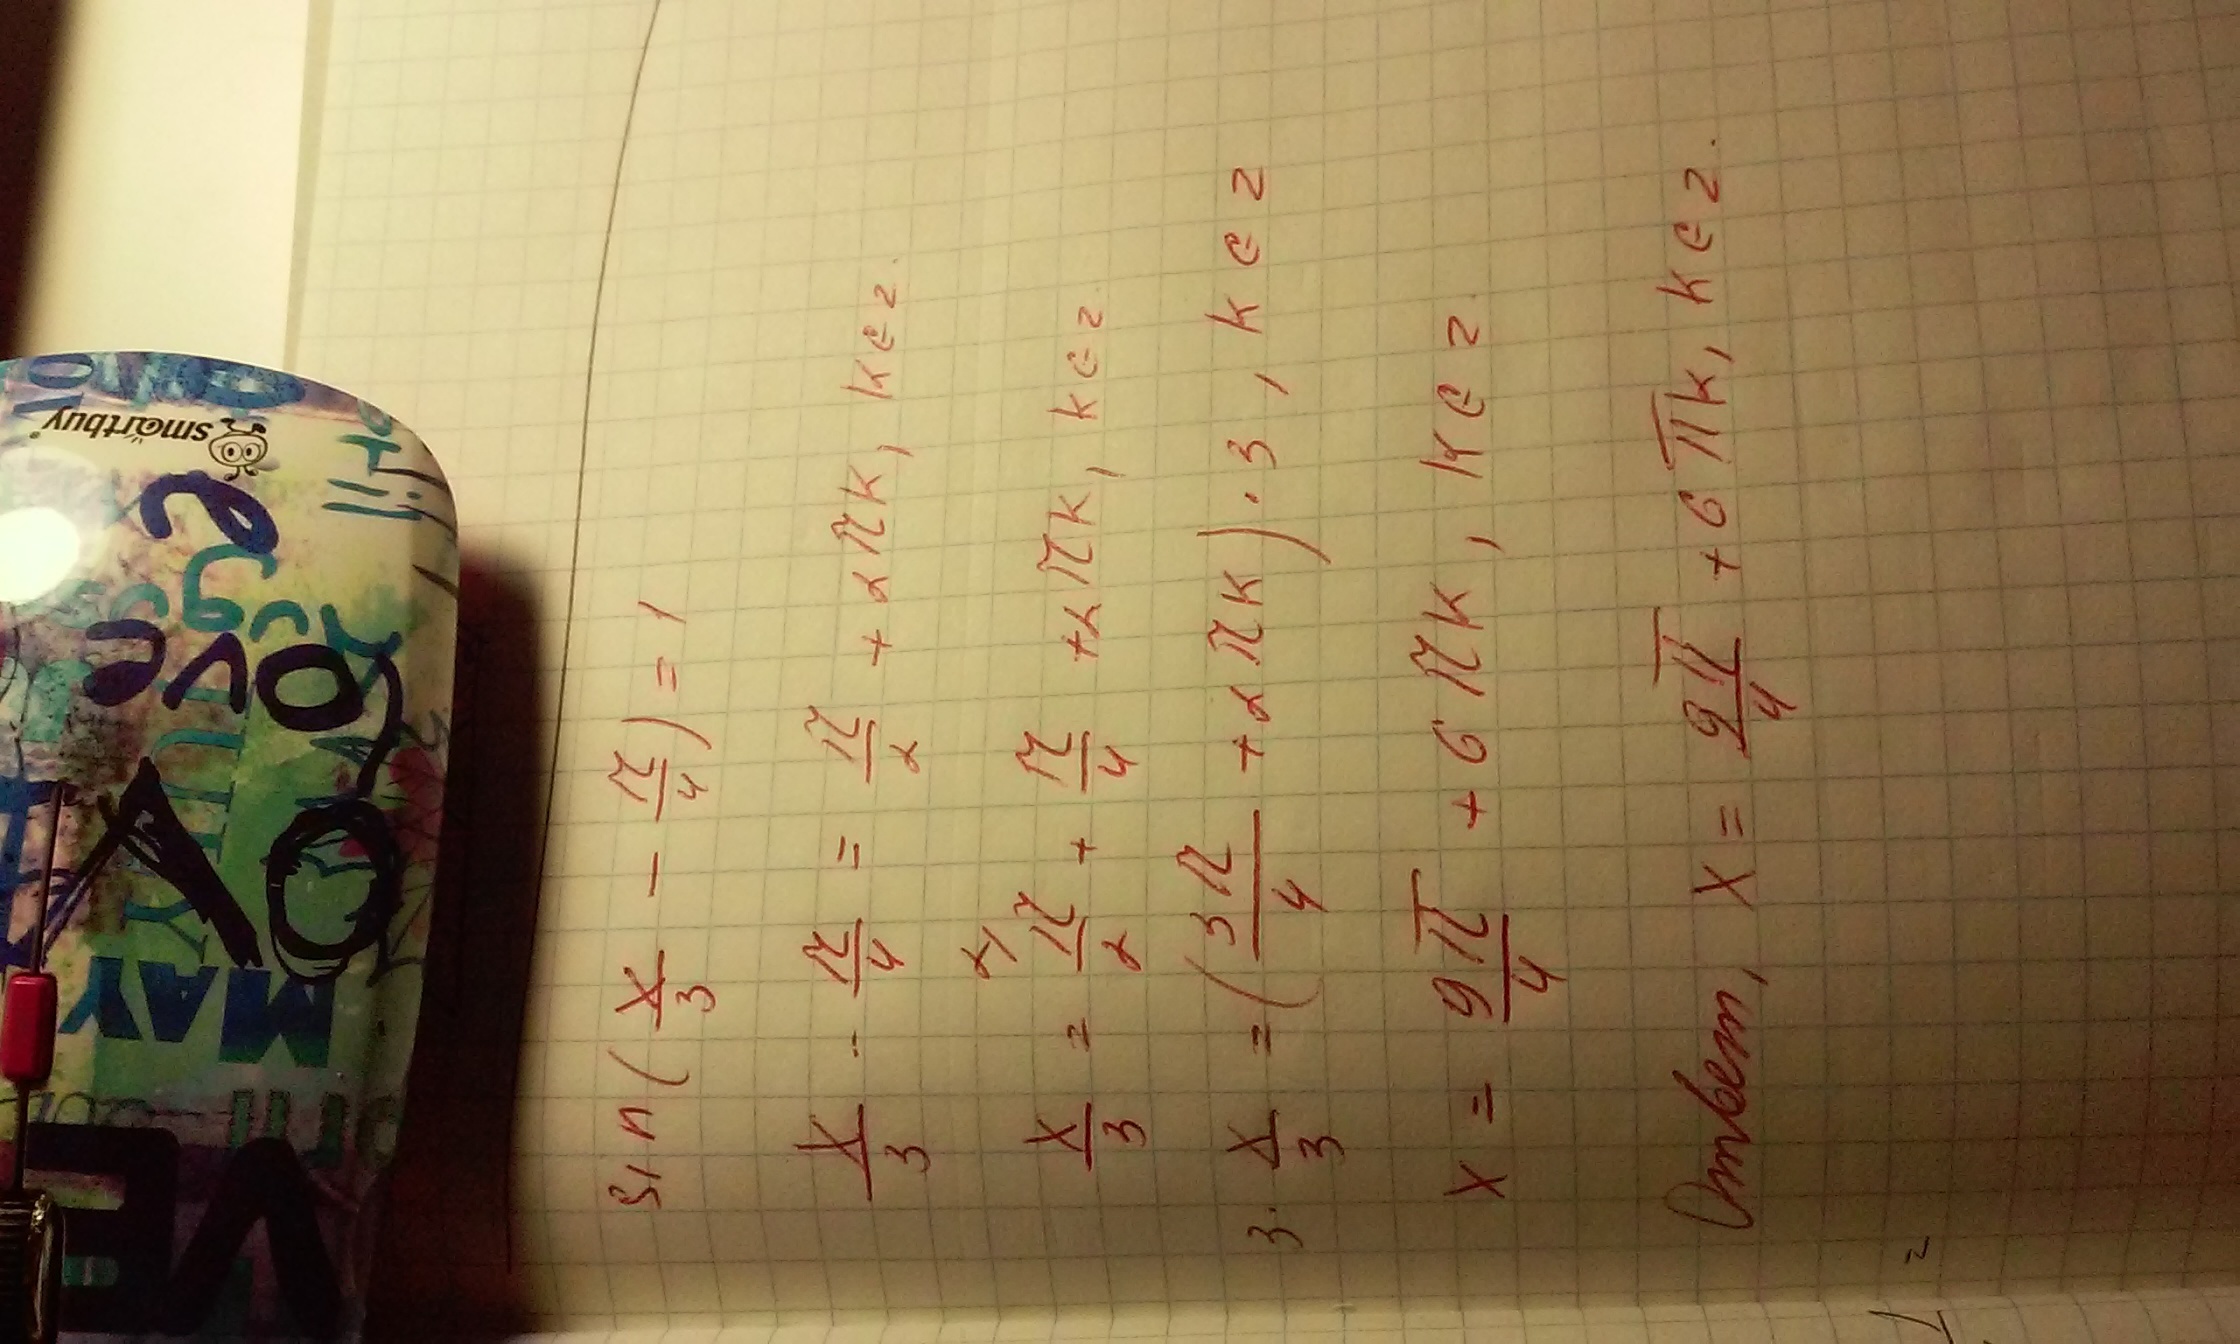 sin(x/3 - π/4) = 1
x/3 - π/4 = π/2 + 2πk, k∈z.
x/3 = 2) π/2 + π/4 + 2πk, k∈z.
3· x/3 = (3π/4 + 2πk)·3, k∈z
x = 9π/4 + 6πk, k∈z.
Ответ, x = 9π/4 + 6πk, k∈z.
smartbuy
Love
MAY